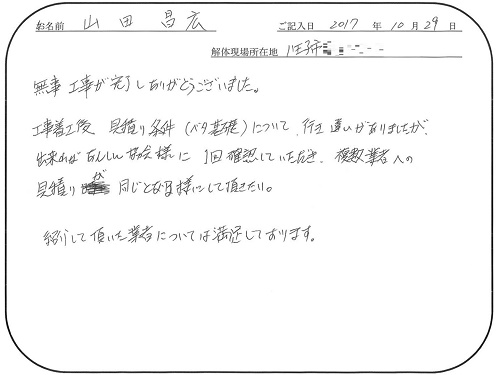 お名前 山田昌広 ご記入日 2017 年 10 月 29 日
解体現場所在地 八王子市
無事工事が完了しありがとうございました。
工事着工後 見積り条件(ベタ基礎)について、行き違いがありましたが、
出来ればあんしん 様に 1回確認していただき、複数業者への
見積りが同じとなる様にして頂きたい。
紹介して頂いた業者については満足しております。